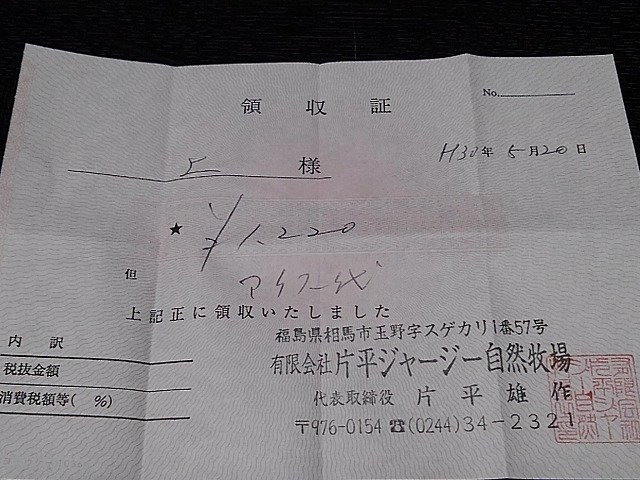 領収証
No.
H30年 5月20日
上 様
★ ¥1,220
但 アイス代
上記正に領収いたしました
内 訳
税抜金額
消費税額等( %)
福島県相馬市玉野字スゲカリ1番57号
有限会社片平ジャージー自然牧場
代表取締役 片平雄作
〒976-0154 ☎(0244)34-2321